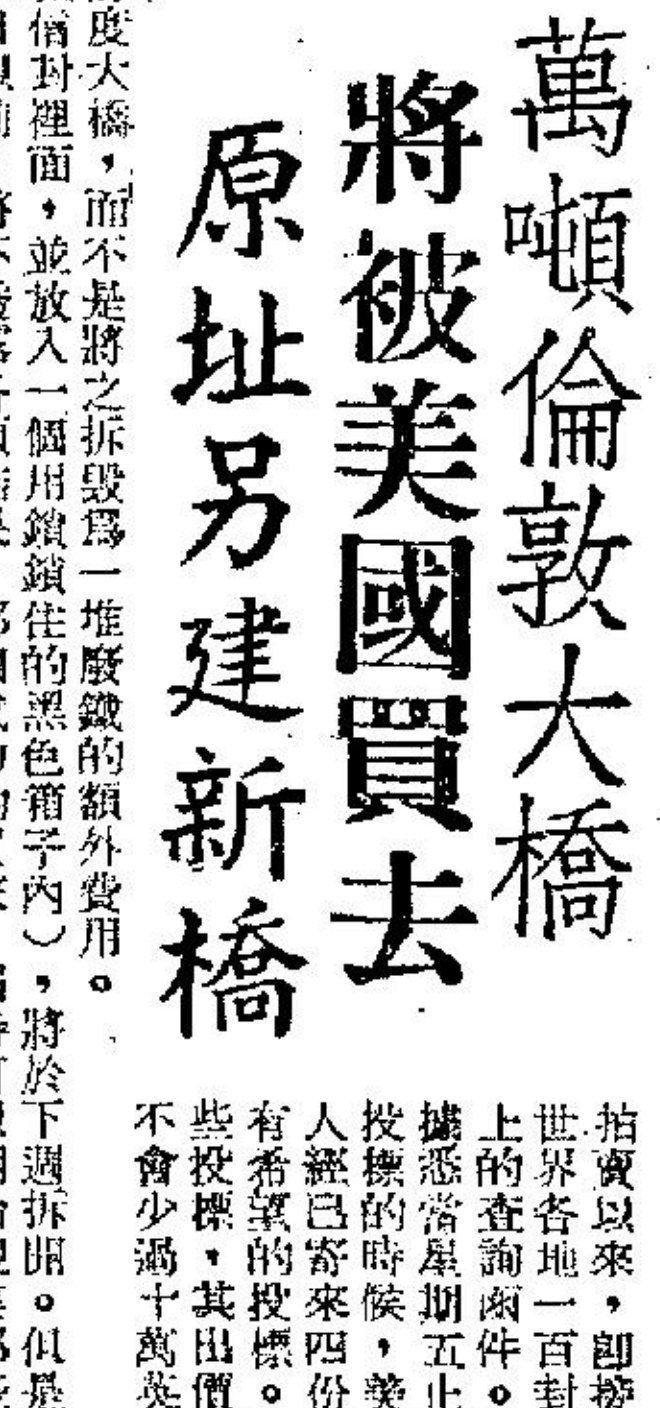 萬噸倫敦大橋
將被美國買去
原址另建新橋
拍賣以來，卽接
世界各地一百封
上的查詢函件。
據悉當星期五止
投標的時候，美
人經已寄來四份
有希望的投標。
些投標，其出價
不會少過十萬英
度大橋，而不是將之拆毀爲一堆廢鐵的額外費用。
信封裡面，並放入一個用鎖鎖住的黑色箱子內），將於下週拆開。但是